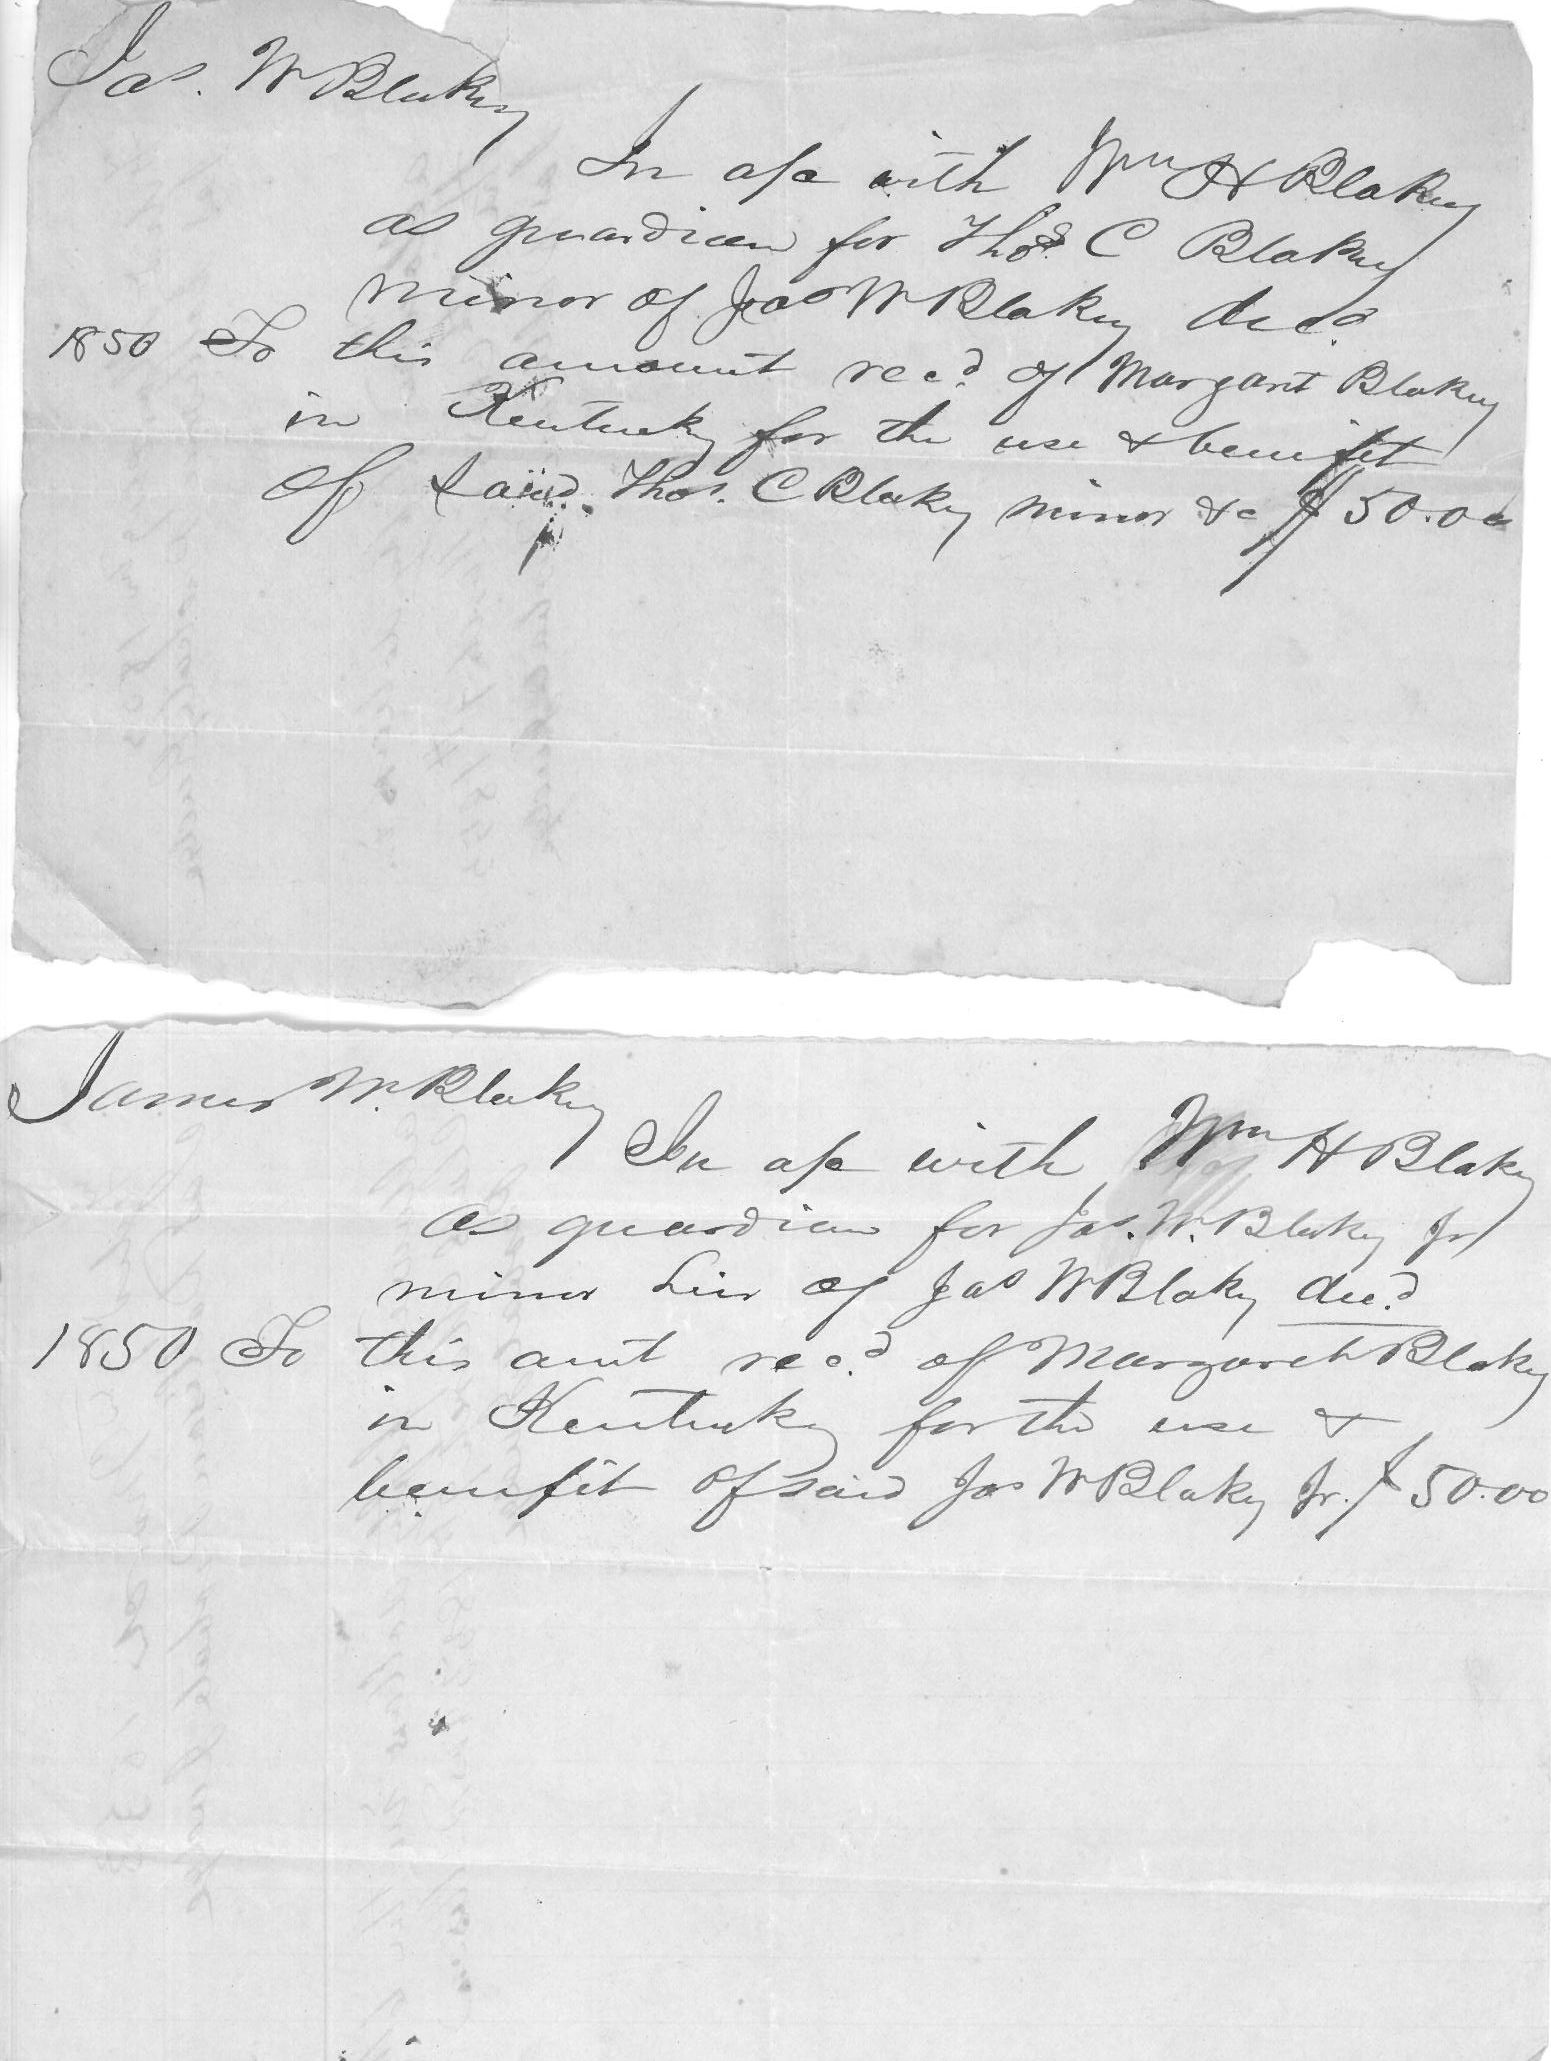 Jas. W Blakey
In a/c with Wm H Blakey
as guardian for Thos. C Blakey
minor of Jas W Blakey decd
1850 To this amount recd. of Margaret Blakey
in Kentucky for the use & benifit
of said Thos. C Blakey minor &c $50.00
James W. Blakey
In a/c with Wm H Blakey
as guardian for Jas. W. Blakey Jr
minor heir of Jas W Blakey decd.
1850 To this amt recd. of Margaret Blakey
in Kentucky for the use &
benefit of said Jas W Blakey Jr. $50.00